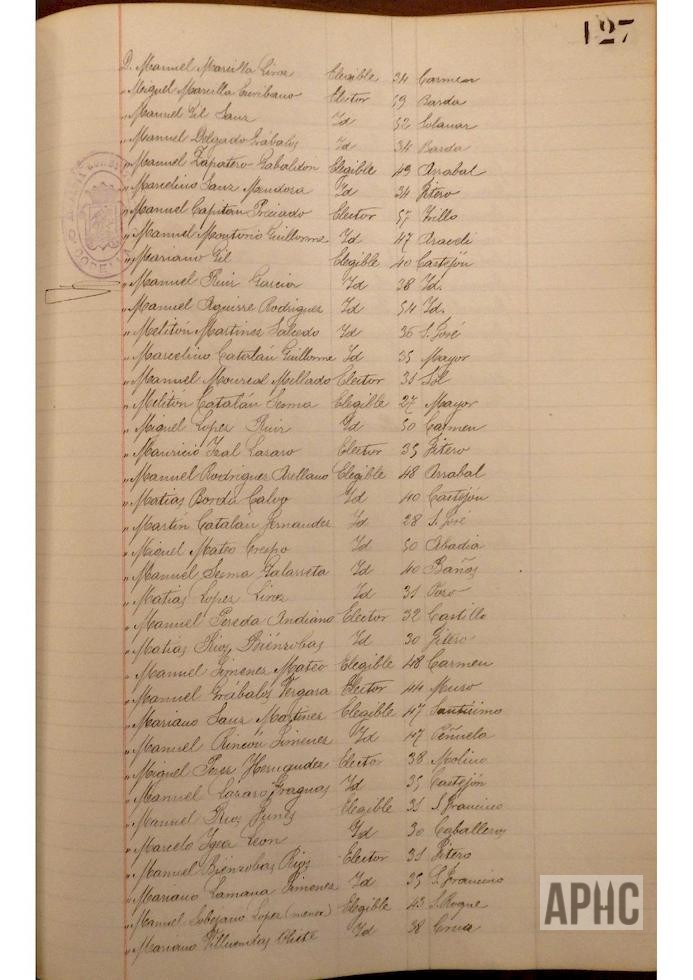 127
D. Manuel Marsilla Liroz Elegible 34 Carmen
" Miguel Marsilla Escribano Elector 59 Barda
" Manuel Gil Sanz Id 52 Solanar
" Manuel Delgado Grábalos Id 34 Barda
" Manuel Zapatero Gabaldon Elegible 49 Arrabal
" Marcelino Sanz Mendoza Id 34 Fitero
" Manuel Capitán Preciado Elector 57
" Manuel Montorio Guillorme Id 47 Araceli
" Mariano Gil Elegible 40 Castejón
" Manuel Ruiz Garcia Id 28 Id.
" Manuel Aguirre Rodriguez Id 54 Id.
" Melitón Martinez Salcedo Id 36 S. José
" Marcelino Catalán Guillorme Id 35 Mayor
" Manuel Monreal Millado Elector 31 Sol
" Melitón Catalán Sesma Elegible 27 Mayor
" Miguel Lopez Ruiz Id 50 Carmen
" Mauricio Lazaro Elector 35 Fitero
" Manuel Rodriguez Arellano Elegible 48 Arrabal
" Matias Borda Calvo Id 40 Castejón
" Martin Catalán Fernandez Id 28 S. José
" Miguel Mateo Crespo Id 50 Abadia
" Manuel Sesma Galarreta Id 40 Baños
" Matias Lopez Liroz Id 31 Pozo
" Manuel Pereda Andiano Elector 32 Castillo
" Matias Rios Biénzobas Id 30 Fitero
" Manuel Jimenez Mateo Elegible 48 Carmen
" Manuel Grábalos Vergara Elector 44 Muro
" Mariano Sanz Martinez Elegible 47 Santisimo
" Manuel Rincón Jimenez Id 47 Peñuela
" Miguel Perez Hernandez Elector 38 Molino
" Manuel Lázaro Fraguas Id 35 Castejón
" Manuel Rios Elegible 31 S. Francisco
" Marcelo Igea Leon Id 30 Caballeros
" Manuel Biénzobas Rios Elector 31 Fitero
" Mariano Lamana Jimenez Id 35 S. Francisco
" Manuel Sobejano Lopez (menor) Elegible 43 S. Roque
" Mariano Villuendas Id 38 Cruz
APHC